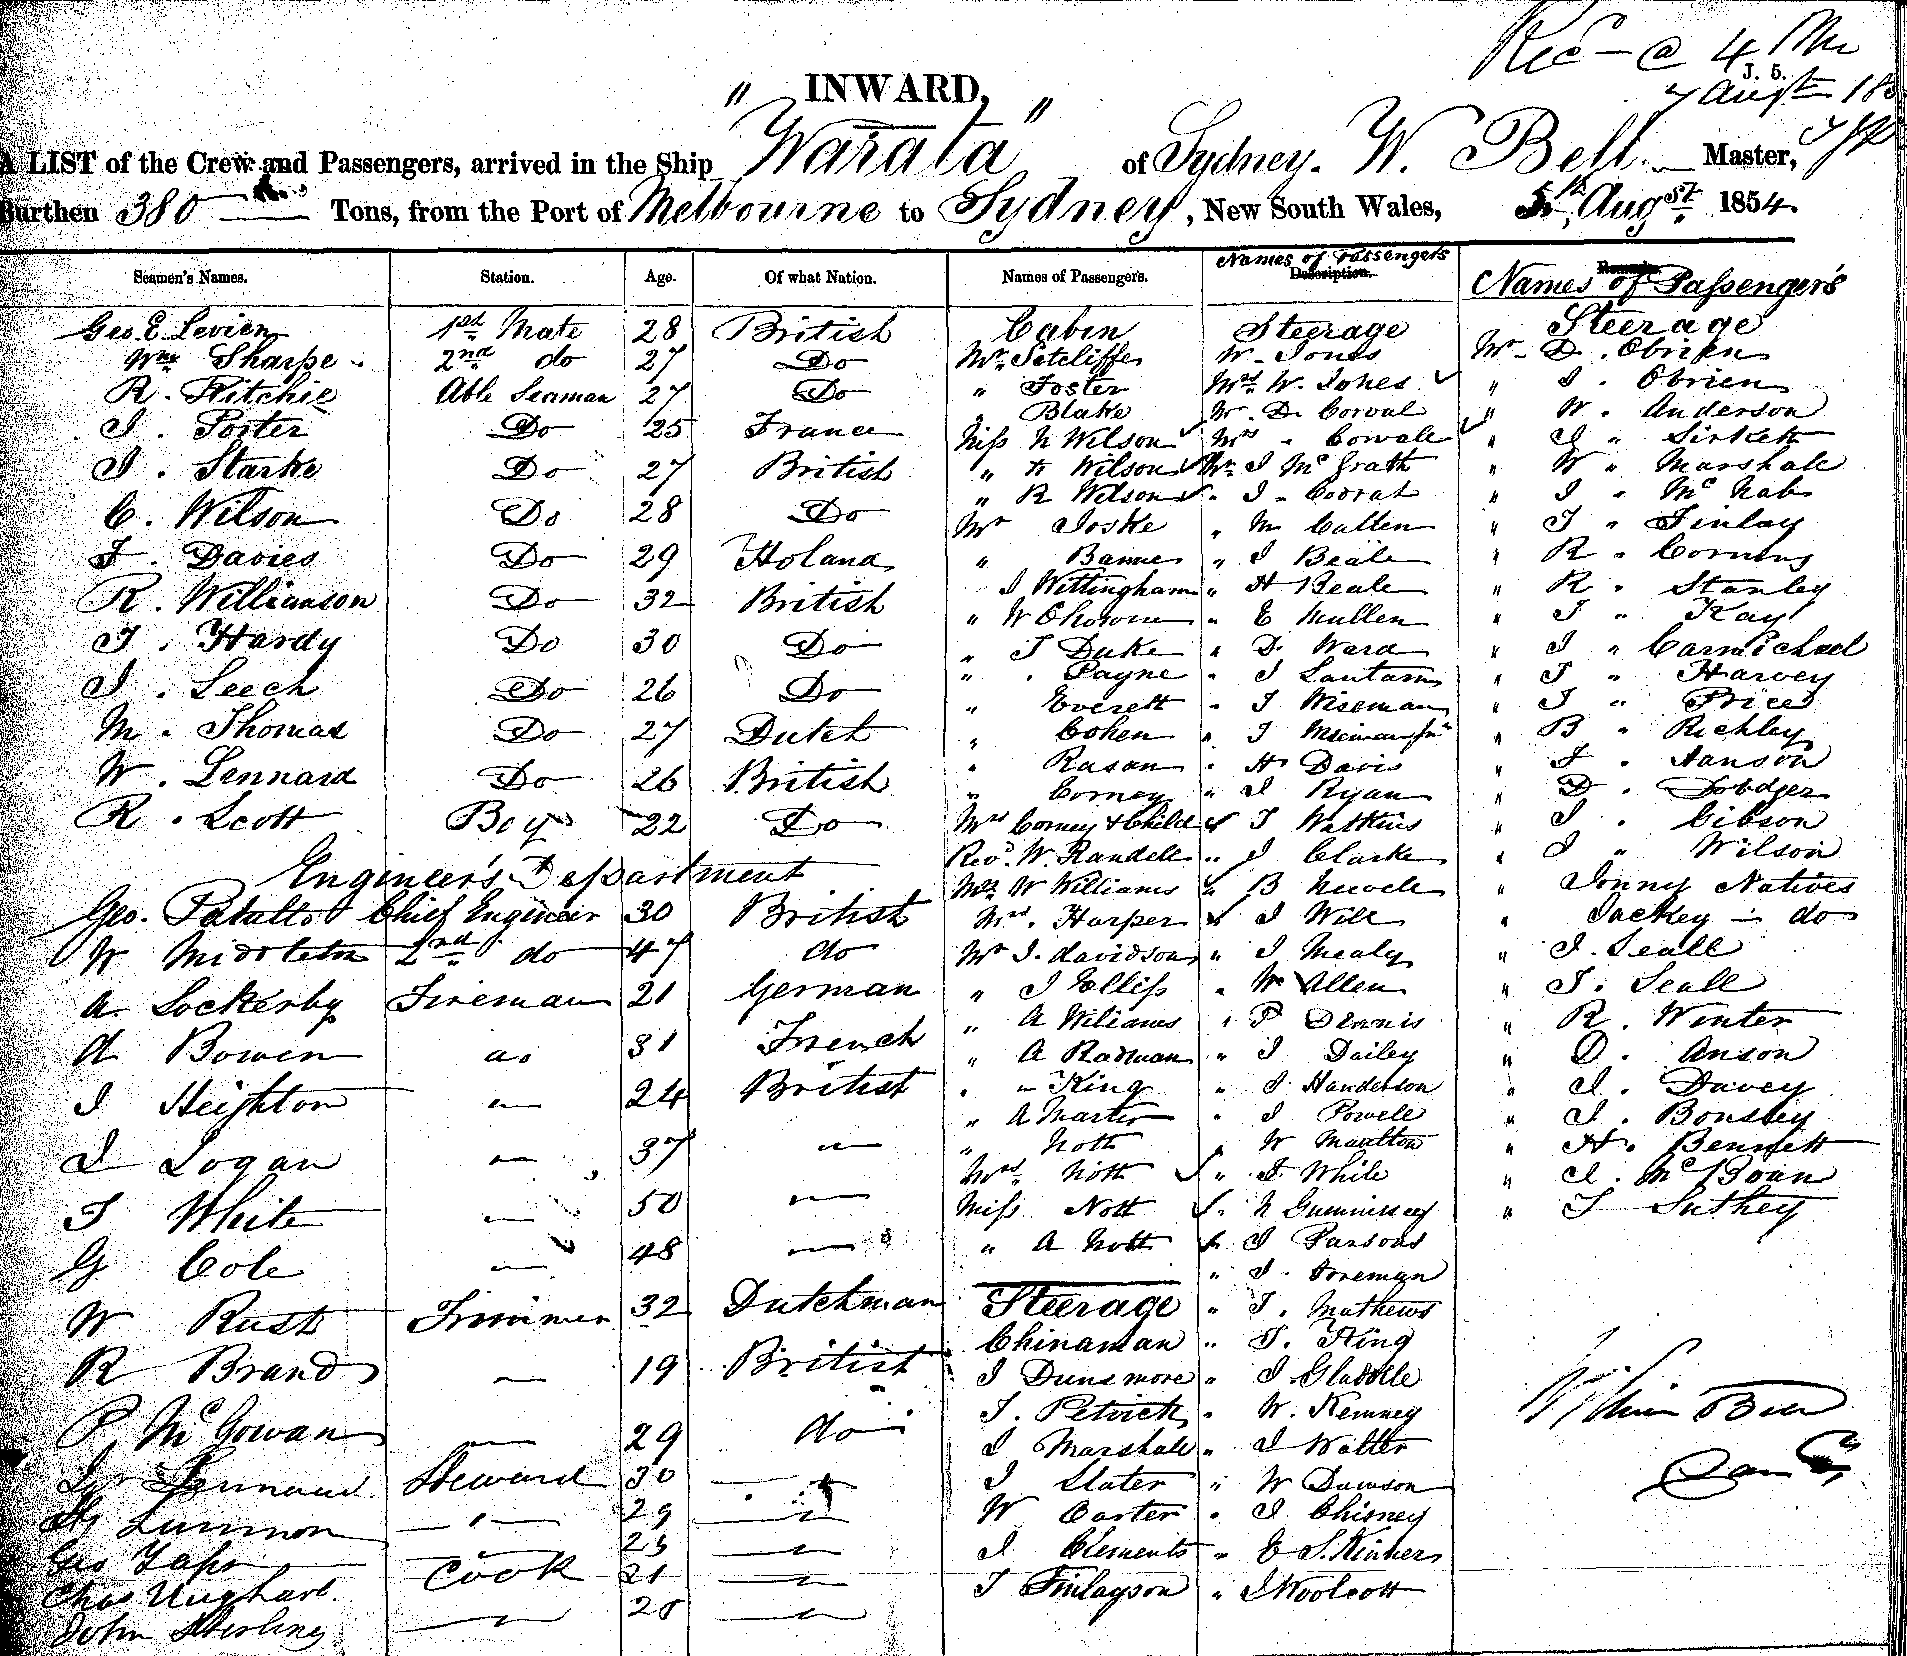 Rec - @ 4 PM
J. 5.
7 Augt 18
" INWARD, "
A LIST of the Crew and Passengers, arrived in the Ship "Warata" of Sydney. W. Bell. Master,
Burthen 380 Tons, from the Port of Melbourne to Sydney, New South Wales, 5th Augst 1854
Seamen's Names. Station. Age. Of what Nation. Names of Passengers. Names of Passengers Description. Names of Passenger's
Geo. E. Levien 1st Mate 28 British Cabin Steerage Steerage
Wm Sharpe 2nd do 27 Do Mr Sutcliffe W. Jones Mr D. Obrien
R. Ritchie Able Seaman 27 Do " Foster Mrs W. Jones " J. Obrien
J. Porter Do 25 France " Blake Mr D. Corval " W. Anderson
J. Starke Do 27 British Miss N Wilson Mrs " Corvale " J " Sirkett
C. Wilson Do 28 Do " K Wilson Mr J McGrath " W " Marshale
J. Davies Do 29 Holand " R Wilson " J. Corrat " J " McNab
R. Williamson Do 32 British Mr Joske " M Cullen " J " Finlay
J. Hardy Do 30 Do " Barnes " J Beale " R " Corning
J. Leech Do 26 Do J Wittingham " H Beale " R " Stanley
M. Thomas Do 27 Dutch " W " E Mullen " J " Kay
W. Lennard Do 26 British " J Duke " D. Ward " J " Carmichael
R. Scott Boy 22 Do " Payne " J Lantam " J " Harvey
" Everett " J Wiseman " J " Price
" Cohen " J Wiseman Jnr " B " Richley
" Rasan " H Davis " J. Hanson
" Corney " J Ryan " D. Dodger
Mrs Corney & Child J Watkins " J. Gibson
Engineer's Department Revd. W. Randell " J Clarke " J " Wilson
Geo. Patullo Chief Engineer 30 British Mr W Williams " B Newele " Jonny Natives
W Middleton 2nd do 47 do Mrs. Harper J Will " Jackey - do
A. Lockerby Fireman 21 German Mr J. davidson " J Mealy " J. Seall
A Bowen do 31 French " J Elliss " W Allen " J. Seall
J Heighton 24 British " A Wiliams " P Dennis " R. Winter
J Logan 37 " A Radman " J Dailey " D. Anson
J White 50 " King " J. Handerson " J. Davey
G Cole 48 " A Marter " J Powell " J. Bonsley
W Rust Trimmer 32 Dutchman " Nott " W Maulton " H. Bennett
R Brand 19 British Mrs. Nott " J. White " J. McBoan
P McGowan 29 do Miss Nott N " J Suthey
" A Nott J Parsons
" J. Foreman
Steerage " J. Mathews
Chinaman " J. King
J Dunsmore " J Gladdle
J. Petrick " W. Kemney
J Marshale " J Walter
Lennard Steward 30 J Slater " W Dawson
Lummon 29 W Carter " J Chisney
Geo 23 J Clements " E Skinner
Chas Urquhart Cook 21 J Finlayson " J Woolcott
John Sterling 20
William Bell